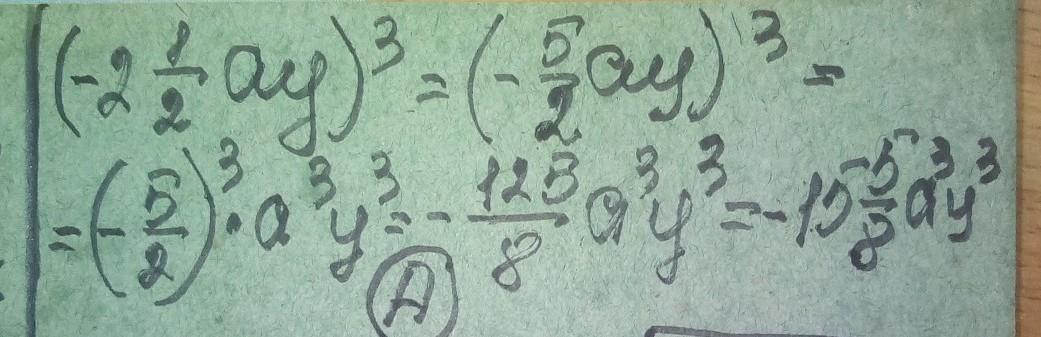 (-2 1/2 ay)³ = (-5/2 ay)³ =
= (-5/2)³ · a³y³ = - 125/8 a³y³ = -15 5/8 a³y³
А